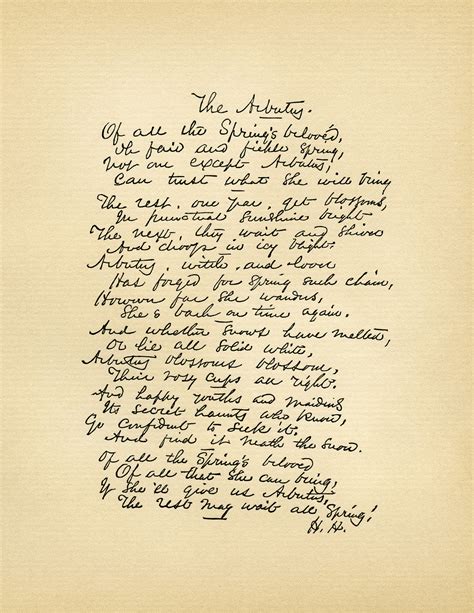 The Arbutus.
Of all the Spring's belovèd,
Oh fair and fickle Spring,
Not one except Arbutus,
Can trust what she will bring
The rest, one year, get blossoms,
In punctual sunshine bright
The next, they wait and shiver
And droop in icy blight.
Arbutus, witch and lover
Has forged for Spring such chain,
However far she wanders,
She's back on time again.
And whether snows have melted,
Or lie all solid white,
Arbutus blossoms blossom,
Their rosy cups all right.
And happy youths and maidens
Its secret haunts who know,
Go confident to seek it.
And find it neath the snow.
Of all the Spring's beloved
Of all that she can bring,
If she'll give us Arbutus,
The rest may wait all Spring!
H. H.